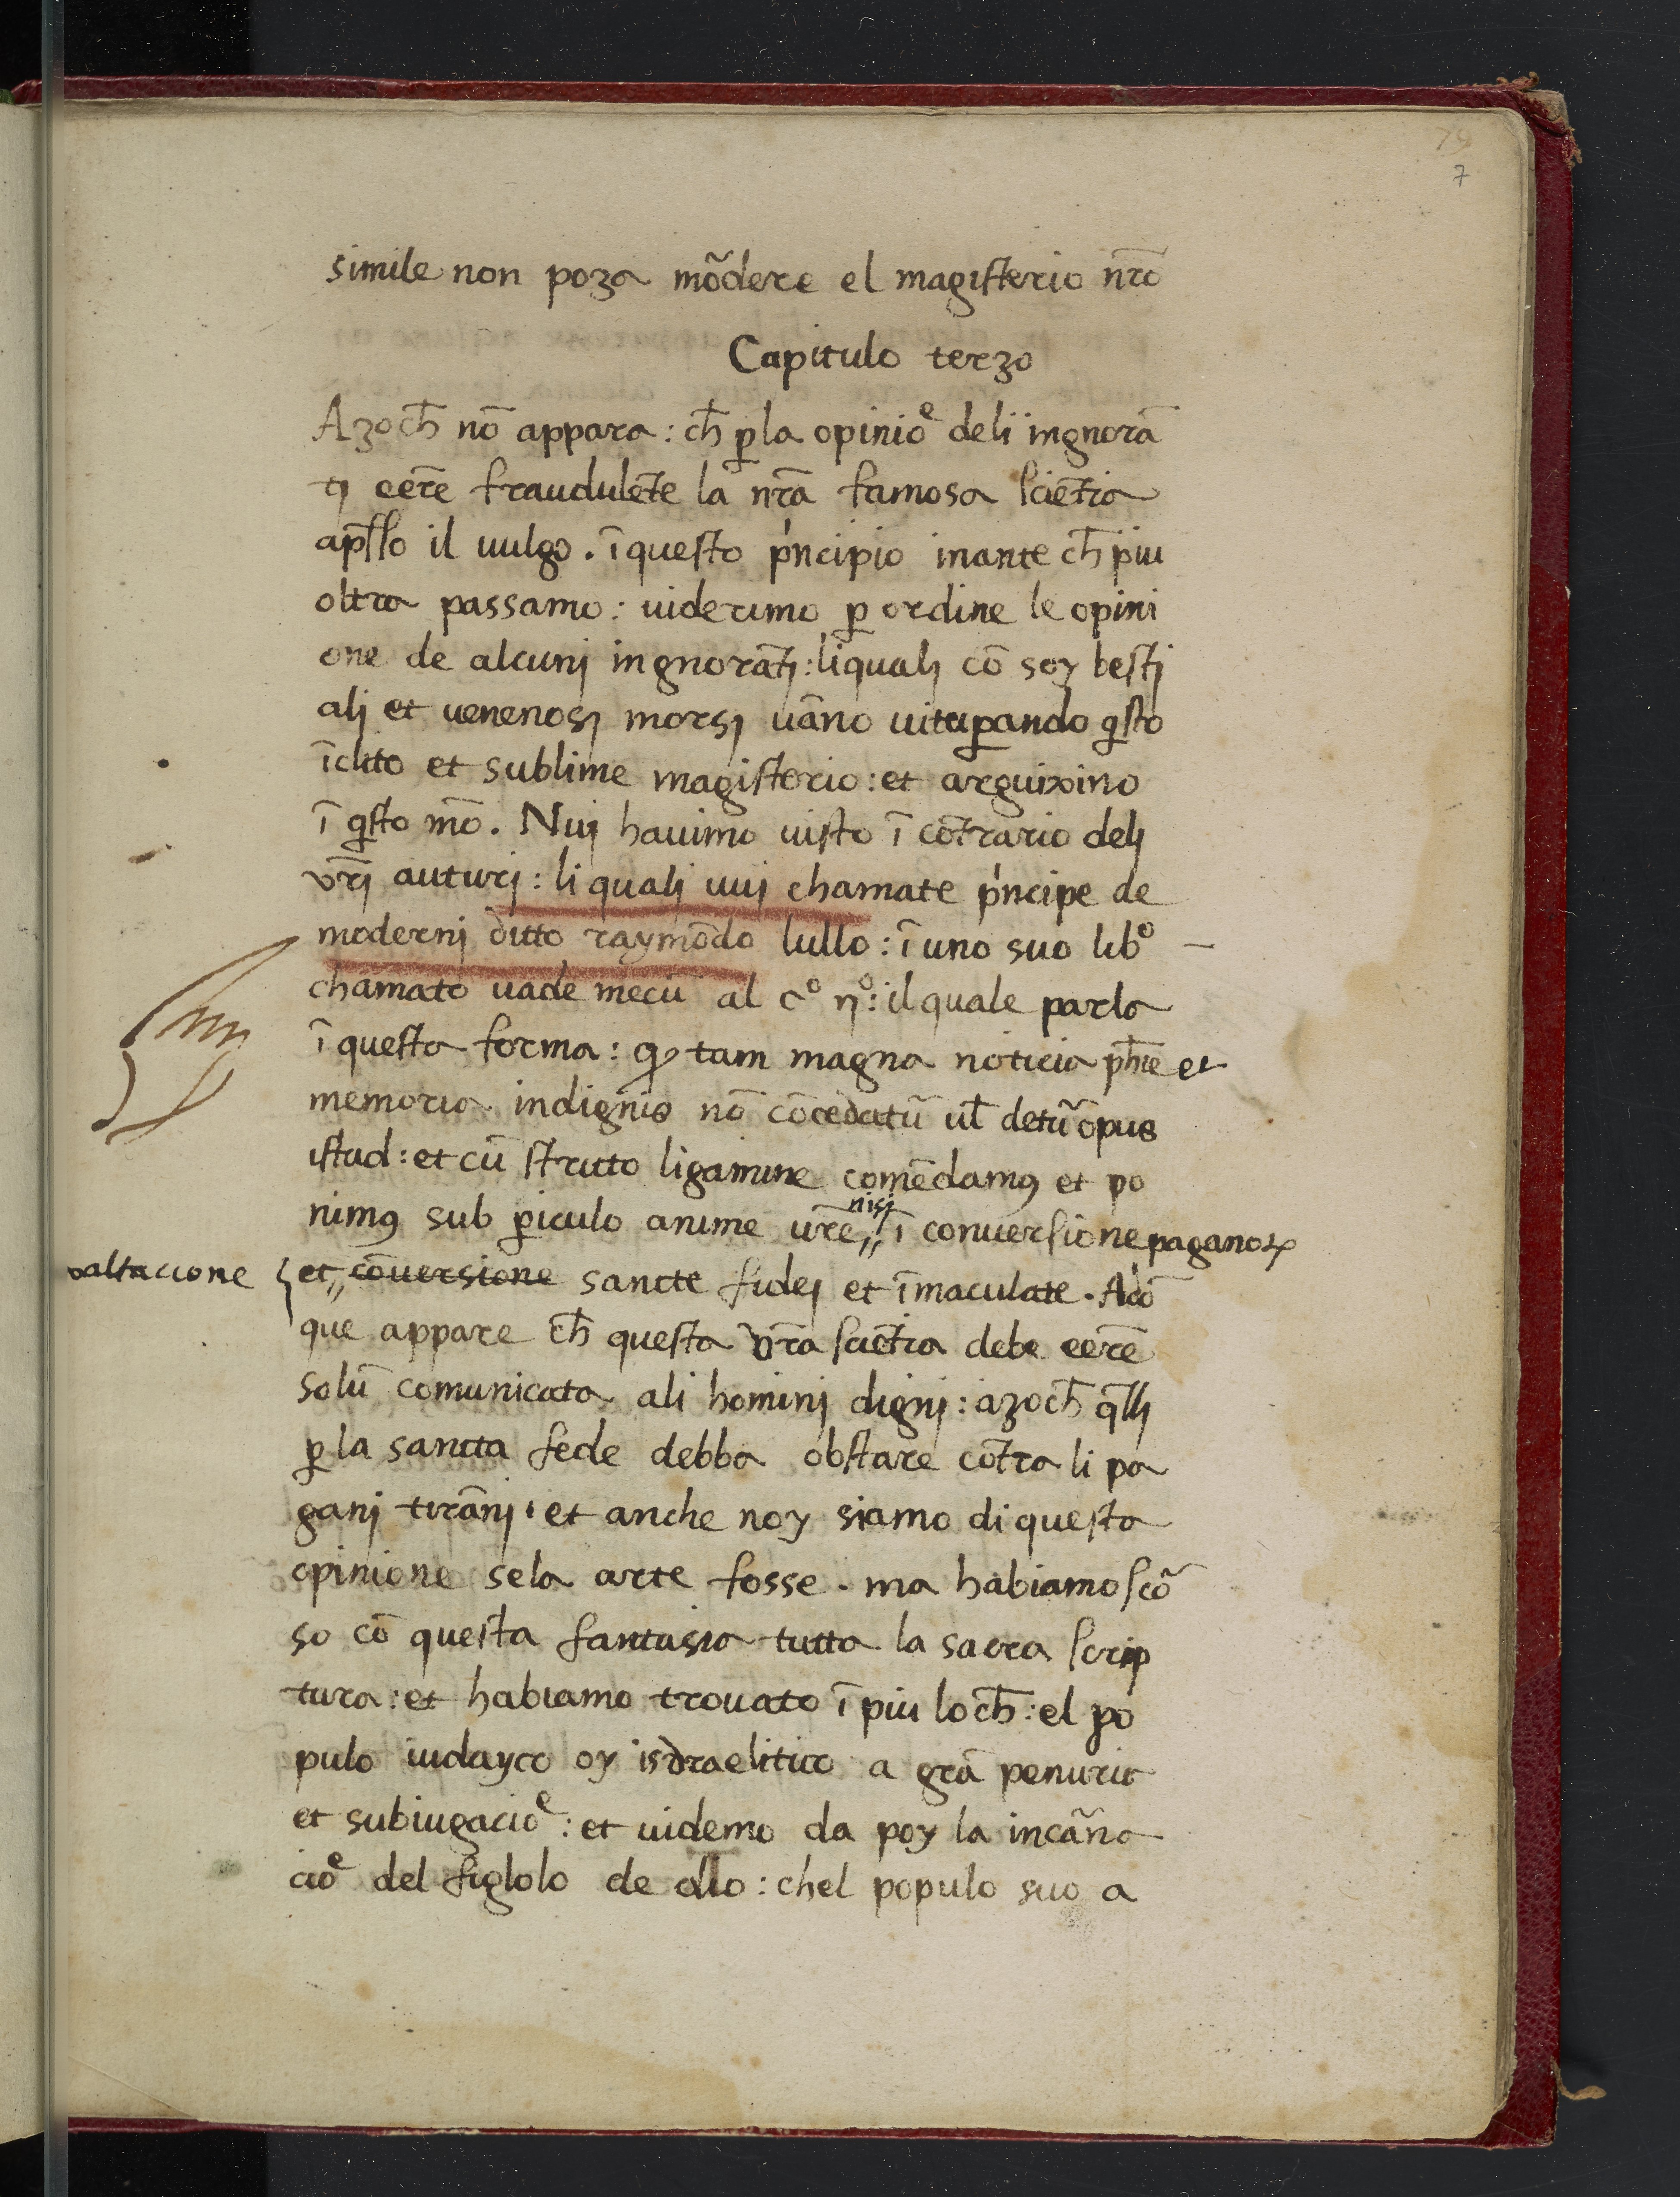 79
7
simile non poza mõdere el magisterio nr̄o
Capitulo terzo
Azoch̄ nō appara : ch̄ ꝑla opinioᵉ deli ingnorā
tj eēre fraudulēte la nr̄a famosa sciētia
ap̄sso il uulgo . ī questo pͥncipio inante ch̄ piu
oltra passamo : uiderimo ꝑ ordine le opini
one de alcunj ingnorātj : liqualj cō soy bestj
alj et uenenosj morsj uāno uituꝑando q̄sto
īclito et sublime magisterio : et arguixino
ī q̄sto mō . Nuj hauimo uisto ī cōtrario delj
vr̄j auturj : li qualj uuj chamate pͥncipe de
modernj ditto raymōdo lullo : ī uno suo libᵒ –
chamato uade mecū al cᵒ nᵒ : il quale parla
ī questa forma : ꝙ tam magna noticia ph̄ie et
memoria indignis nō cōcedatū ul̄ detū opus
istud : et cū stricto ligamine comēdamꝯ et po
nimꝯ sub ꝑiculo anime ur̄e,, nisj ī conuersione paganoꝝ
xaltacione { et,, cōuersione sancte fidej et īmaculate . Adō
que appare ch̄ questa vr̄a sciētia debe eēre
solū comunicata ali hominj dignj : azoch̄ q̄llj
ꝑ la sancta fede debba obstare cōtra li pa
ganj tirānj ' et anche noy siamo di questa
opinione sela arte fosse . ma habiamo scō
so cō questa fantasia tutta la sacra scrip
tura : et habiamo trouato ī piu loch̄ : el po
pulo iudayco oy isdraelitico a grā penuria
et subiugacioᵉ : et uidemo da poy la incāna
cioᵉ del figlolo de dio : chel populo suo a